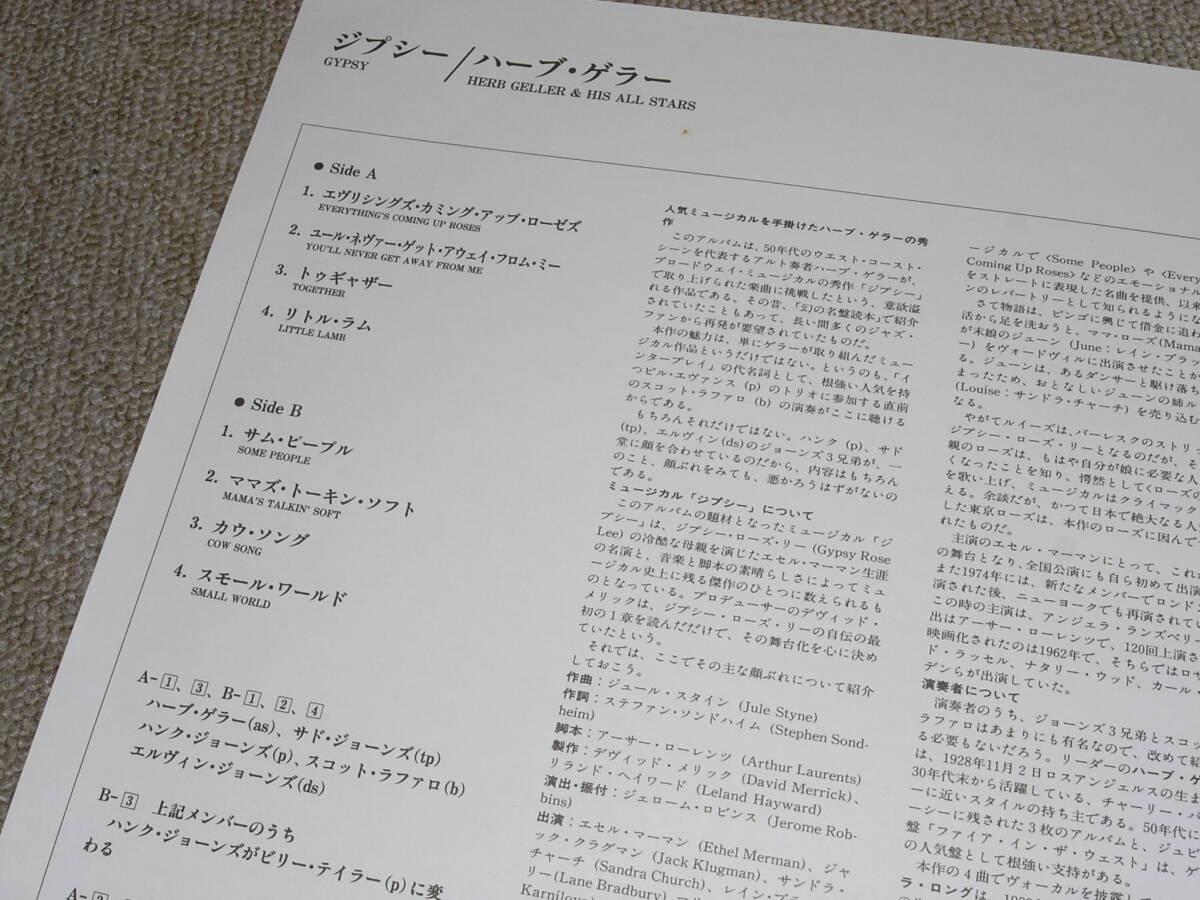 ジプシー／ハーブ・ゲラー
GYPSY HERB GELLER & HIS ALL STARS
● Side A
1. エヴリシングズ・カミング・アップ・ローゼズ
EVERYTHING'S COMING UP ROSES
2. ユール・ネヴァー・ゲット・アウェイ・フロム・ミー
YOU'LL NEVER GET AWAY FROM ME
3. トゥギャザー
TOGETHER
4. リトル・ラム
LITTLE LAMB
● Side B
1. サム・ピープル
SOME PEOPLE
2. ママズ・トーキン・ソフト
MAMA'S TALKIN' SOFT
3. カウ・ソング
COW SONG
4. スモール・ワールド
SMALL WORLD
A-1、3、B-1、2、4
ハーブ・ゲラー(as)、サド・ジョーンズ(tp)
ハンク・ジョーンズ(p)、スコット・ラファロ(b)
エルヴィン・ジョーンズ(ds)
B-3 上記メンバーのうち
ハンク・ジョーンズがビリー・テイラー(p)に変
わる
人気ミュージカルを手掛けたハーブ・ゲラーの秀
作
このアルバムは、50年代のウエスト・コースト・
シーンを代表するアルト奏者ハーブ・ゲラーが、
ブロードウェイ・ミュージカルの秀作「ジプシー」
で取り上げられた楽曲に挑戦したという、意欲溢
れる作品である。その昔、「幻の名盤読本」で紹介
されていたこともあって、長い間多くのジャズ・
ファンから再発が要望されていたものだ。
本作の魅力は、単にゲラーが取り組んだミュー
ジカル作品というだけではない。というのも、「イ
ンタープレイ」の代名詞として、根強い人気を持
つビル・エヴァンス (p) のトリオに参加する直前
のスコット・ラファロ (b) の演奏がここに聴ける
からである。
もちろんそれだけではない。ハンク (p)、サド
(tp)、エルヴィン(ds)のジョーンズ3兄弟が、一
堂に顔を合わせているのだから、内容はもちろん
のこと、顔ぶれをみても、悪かろうはずがないの
である。
ミュージカル「ジプシー」について
このアルバムの題材となったミュージカル「ジ
プシー」は、ジプシー・ローズ・リー (Gypsy Rose
Lee) の冷酷な母親を演じたエセル・マーマン生涯
の名演と、音楽と脚本の素晴らしさによってミュ
ージカル史上に残る傑作のひとつに数えられるも
のとなっている。プロデューサーのデヴィッド・
メリックは、ジプシー・ローズ・リーの自伝の最
初の1章を読んだだけで、その舞台化を心に決め
ていたという。
それでは、ここでその主な顔ぶれについて紹介
しておこう。
作曲：ジュール・スタイン (Jule Styne)
作詞：ステファン・ソンドハイム (Stephen Sond-
heim)
脚本：アーサー・ローレンツ (Arthur Laurents)
製作：デヴィッド・メリック (David Merrick)、
リランド・ヘイワード (Leland Hayward)
演出・振付：ジェローム・ロビンス (Jerome Rob-
bins)
出演：エセル・マーマン (Ethel Merman)、ジャ
ック・クラグマン (Jack Klugman)、サンドラ・
チャーチ (Sandra Church)、レイン・ブラ
リー(Lane Bradbury)
Karnilova
ージカルで〈Some People〉や〈Every
Coming Up Roses〉などのエモーショナル
をストレートに表現した名曲を提供、以来
ンのレパートリーとして知られるようにな
さて物語は、ビンゴに興じて借金に追わ
活から足を洗おうと、ママ・ローズ(Mama
が末娘のジューン (June：レイン・ブラッ
ー) をヴォードヴィルに出演させたことか
る。ジューンは、あるダンサーと駆け落ち
まったため、おとなしいジューンの姉ル
(Louise：サンドラ・チャーチ) を売り込む
なる。
やがてルイーズは、バーレスクのストリッ
ジプシー・ローズ・リーとなるのだが、そ
親のローズは、もはや自分が娘に必要な人
くなったことを知り、愕然として〈ローズの
を歌い上げ、ミュージカルはクライマック
える。余談だが、かつて日本で絶大なる人
した東京ローズは、本作のローズに因んで
れたものだ。
主演のエセル・マーマンにとって、これ
の舞台となり、全国公演にも自ら初めて出演
また1974年には、新たなメンバーでロンドン
演された後、ニューヨークでも再演されてい
この時の主演は、アンジェラ・ランズベリー
出はアーサー・ローレンツで、120回上演さ
映画化されたのは1962年で、そちらではロザ
ド・ラッセル、ナタリー・ウッド、カール・
デンらが出演していた。
演奏者について
演奏者のうち、ジョーンズ3兄弟とスコッ
ラファロはあまりにも有名なので、改めて紹
る必要もないだろう。リーダーのハーブ・ゲ
は、1928年11月2日ロスアンジェルスの生ま
30年代末から活躍している、チャーリー・パ
ーに近いスタイルの持ち主である。50年代に
ーシーに残された3枚のアルバムと、ジュビ
盤「ファイア・イン・ザ・ウエスト」は、ゲ
の人気盤として根強い支持がある。
本作の4曲でヴォーカルを披露して
ラ・ロングは、